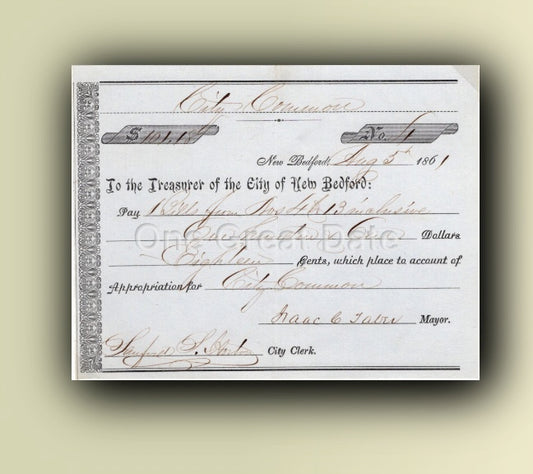 City Common
$ 101.18 No. 1
New Bedford, Aug 5th 1861
To the Treasurer of the City of New Bedford:
Pay Bills from Nos 4 to 13 inclusive
One Hundred One Dollars
Eighteen Cents, which place to account of
Appropriation for City Common
Isaac C Taber Mayor.
Sanford S. Horton City Clerk.
One Great Date